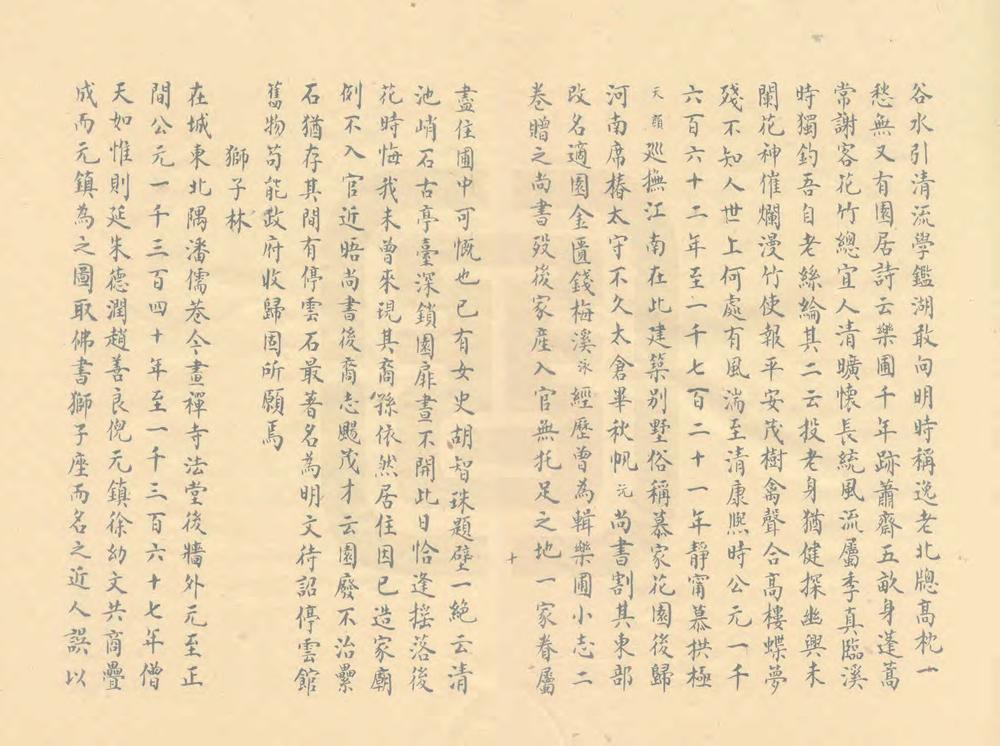 谷水引清流學鑑湖敢向明時稱逸老北牕高枕一
愁無又有園居詩云樂圃千年跡蕭齋五畝身蓬蒿
常謝客花竹總宜人清曠懷長統風流屬季真臨溪
時獨釣吾自老絲綸其二云投老身猶健探幽興未
闌花神催爛漫竹使報平安茂樹禽聲合高樓蝶夢
殘不知人世上何處有風湍至清康熙時公元一千
六百六十二年至一千七百二十一年靜甯慕拱極
天顏巡撫江南在此建築別墅俗稱慕家花園後歸
河南席椿太守不久太倉畢秋帆元尚書割其東部
改名適園金匱錢梅溪泳經歷曾為輯樂圃小志二
卷贈之尚書歿後家產入官無托足之地一家眷屬
盡住圃中可慨也已有女史胡智珠題壁一絕云清
池峭石古亭臺深鎖園扉晝不開此日恰逢搖落後
花時悔我未曾來現其裔孫依然居住因已造家廟
例不入官近晤尚書後裔志颺茂才云園廢不治纍
石猶存其間有停雲石最著名為明文待詔停雲館
舊物苟能政府收歸固所願焉
獅子林
在城東北隅潘儒巷今畫禪寺法堂後牆外元至正
間公元一千三百四十年至一千三百六十七年僧
天如惟則延朱德潤趙善良倪元鎮徐幼文共商疊
成而元鎮為之圖取佛書獅子座而名之近人誤以